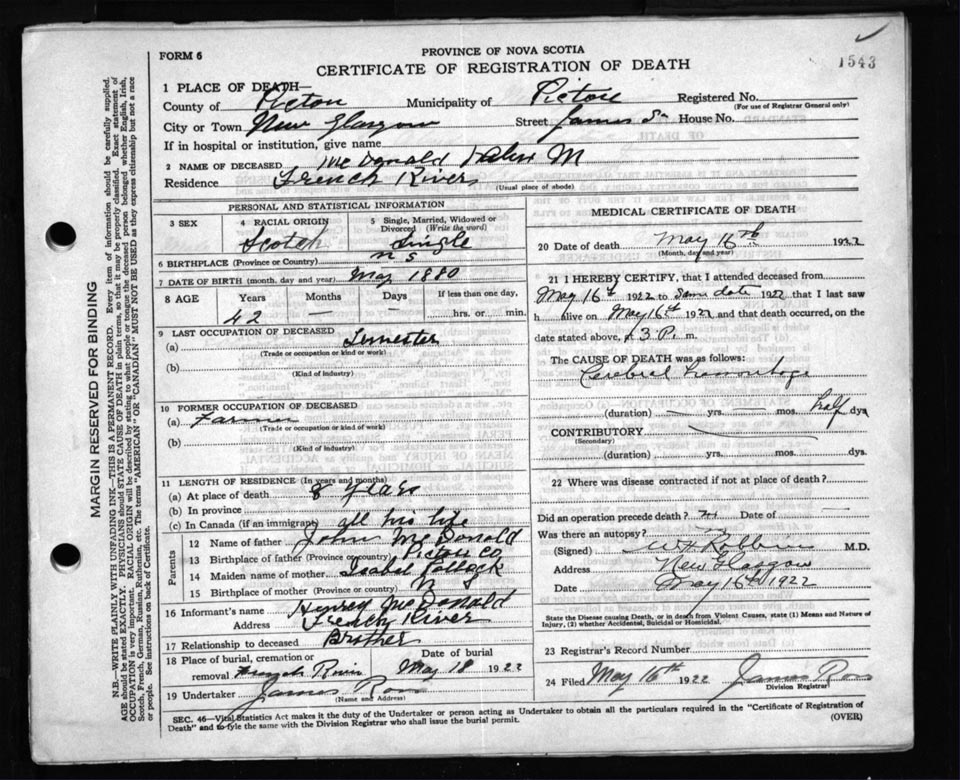 1543
FORM 6
PROVINCE OF NOVA SCOTIA
CERTIFICATE OF REGISTRATION OF DEATH
1 PLACE OF DEATH—
County of Picton Municipality of Pictou Registered No.
(For use of Registrar General only)
City or Town New Glasgow Street James St House No.
If in hospital or institution, give name
2 NAME OF DECEASED McDonald M
Residence French River (Usual place of abode)
PERSONAL AND STATISTICAL INFORMATION
3 SEX 4 RACIAL ORIGIN 5 Single, Married, Widowed or Divorced (Write the word)
Scotch Single
6 BIRTHPLACE (Province or Country) N S
7 DATE OF BIRTH (month, day and year) May 1880
8 AGE Years Months Days If less than one day,
42 — — hrs. or min.
9 LAST OCCUPATION OF DECEASED
(a) Teamster
(Trade or occupation or kind or work)
(b)
(Kind of industry)
10 FORMER OCCUPATION OF DECEASED
(a) Farmer
(Trade or occupation or kind of work)
(b)
(Kind of industry)
11 LENGTH OF RESIDENCE (In years and months)
(a) At place of death 8 years
(b) In province
(c) In Canada (if an immigrant) all his life
Parents
12 Name of father John McDonald
13 Birthplace of father (Province or country) Pictou Co
14 Maiden name of mother Isabel Pollock
15 Birthplace of mother (Province or country) N S
16 Informant's name McDonald
Address French River
17 Relationship to deceased Brother
18 Place of burial, cremation or removal Date of burial
French River May 18 1922
19 Undertaker James Ross
(Name and Address)
MEDICAL CERTIFICATE OF DEATH
20 Date of death May 16th 1922
(Month, day and year)
21 I HEREBY CERTIFY, that I attended deceased from
May 16th 1922 to Same date 1922 that I last saw
h alive on May 16th 1922 and that death occurred, on the
date stated above, 3 P. m.
The CAUSE OF DEATH was as follows:
Cerebral hemorrhage
(duration) — yrs. — mos. half dys
CONTRIBUTORY
(Secondary)
(duration) yrs. mos. dys.
22 Where was disease contracted if not at place of death?
Did an operation precede death? Date of —
Was there an autopsy?
(Signed) M.D.
Address New Glasgow
Date May 16th 1922
State the Disease causing Death, or in death from Violent Causes, state (1) Means and Nature of
Injury, (2) whether Accidental, Suicidal or Homicidal.
23 Registrar's Record Number
24 Filed May 16th 1922 James Ross
Division Registrar
SEC. 46—Vital Statistics Act makes it the duty of the Undertaker or person acting as Undertaker to obtain all the particulars required in the "Certificate of Registration of
Death" and to fyle the same with the Division Registrar who shall issue the burial permit. (OVER)
MARGIN RESERVED FOR BINDING
N.B.—WRITE PLAINLY WITH UNFADING INK—THIS IS A PERMANENT RECORD. Every item of information should be carefully supplied.
AGE should be stated EXACTLY. PHYSICIANS should STATE CAUSE OF DEATH in plain terms, so that it may be properly classified. Exact statement of
OCCUPATION is very important. RACIAL ORIGIN will be described by stating to what people or tongue the deceased person belonged whether English, Irish,
Scotch, French, German, Russian, Ruthenian, etc. The terms "AMERICAN" OR "CANADIAN" MUST NOT BE USED as they express citizenship but not a race
or people. See instructions on back of Certificate.